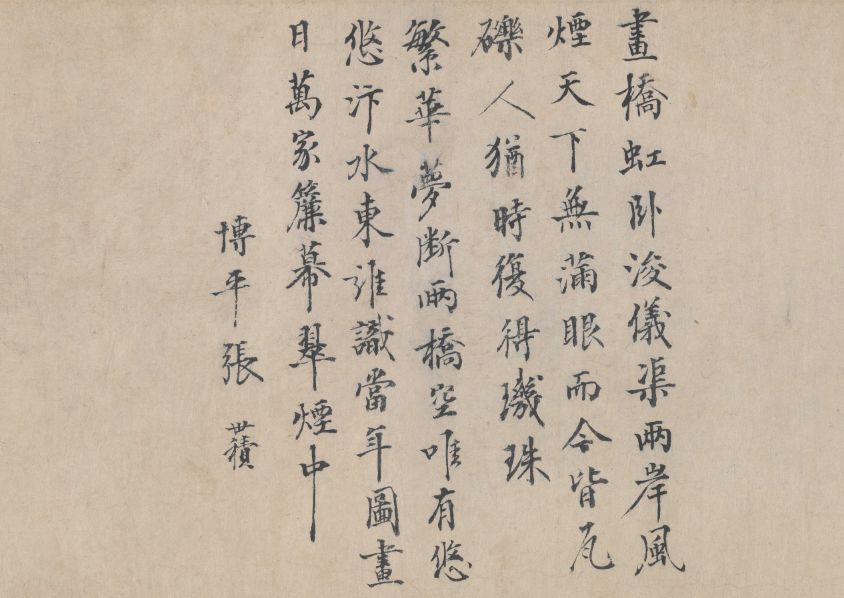 畫橋虹卧浚儀渠兩岸風
煙天下無滿眼而今皆瓦
礫人猶時復得璣珠
繁華夢斷兩橋空唯有悠
悠汴水東誰識當年圖畫
日萬家簾幕翠煙中
博平張世積